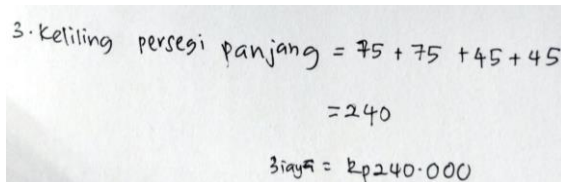 3. Keliling persegi panjang = 75 + 75 + 45 + 45
= 240
Biaya = Rp240.000